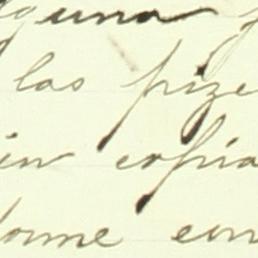 guna
las pize
in copia
tome em